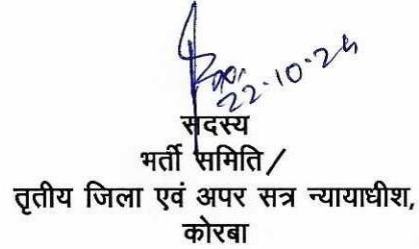 22-10-24
सदस्य
भर्ती समिति/
तृतीय जिला एवं अपर सत्र न्यायाधीश,
कोरबा